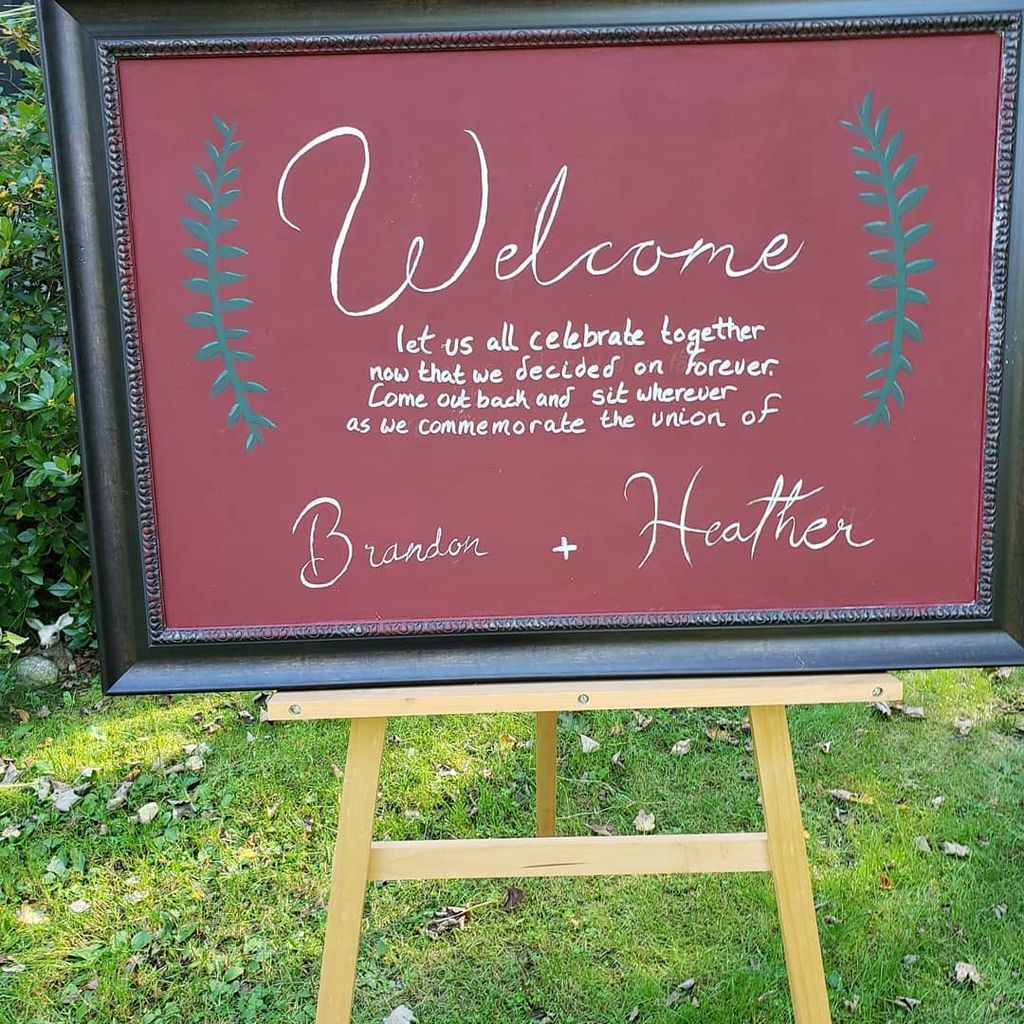 Welcome
let us all celebrate together
now that we decided on forever.
Come out back and sit wherever
as we commemorate the union of
Brandon + Heather